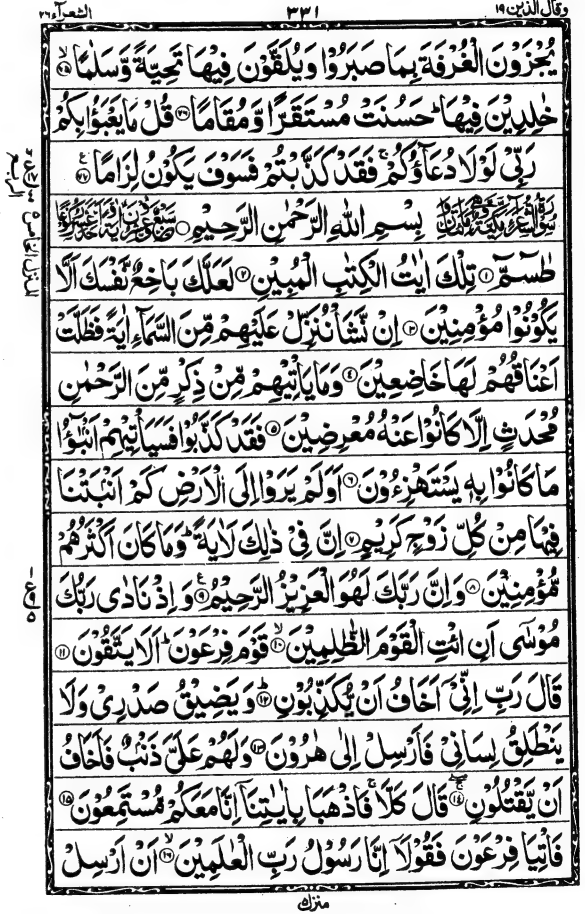 وقال الذین ۱۹
۳۳۱
الشعرآء ۲۶
یُجْزَوْنَ الْغُرْفَةَ بِمَا صَبَرُوْا وَیُلَقَّوْنَ فِیْهَا تَحِیَّةً وَّسَلٰمًا ۙ﴿۷۵﴾
خٰلِدِیْنَ فِیْهَا ؕ حَسُنَتْ مُسْتَقَرًّا وَّمُقَامًا ﴿۷۶﴾ قُلْ مَا یَعْبَؤُا بِكُمْ
رَبِّیْ لَوْلَا دُعَآؤُكُمْ ۚ فَقَدْ كَذَّبْتُمْ فَسَوْفَ یَكُوْنُ لِزَامًا ﴿۷۷﴾ ع
بِسْمِ اللهِ الرَّحْمٰنِ الرَّحِیْمِ
طٰسٓمّٓ ﴿۱﴾ تِلْكَ اٰیٰتُ الْكِتٰبِ الْمُبِیْنِ ﴿۲﴾ لَعَلَّكَ بَاخِعٌ نَّفْسَكَ اَلَّا
یَكُوْنُوْا مُؤْمِنِیْنَ ﴿۳﴾ اِنْ نَّشَاْ نُنَزِّلْ عَلَیْهِمْ مِّنَ السَّمَآءِ اٰیَةً فَظَلَّتْ
اَعْنَاقُهُمْ لَهَا خٰضِعِیْنَ ﴿۴﴾ وَمَا یَاْتِیْهِمْ مِّنْ ذِكْرٍ مِّنَ الرَّحْمٰنِ
مُحْدَثٍ اِلَّا كَانُوْا عَنْهُ مُعْرِضِیْنَ ﴿۵﴾ فَقَدْ كَذَّبُوْا فَسَیَاْتِیْهِمْ اَنْۢبٰٓؤُا
مَا كَانُوْا بِهٖ یَسْتَهْزِءُوْنَ ﴿۶﴾ اَوَلَمْ یَرَوْا اِلَی الْاَرْضِ كَمْ اَنْۢبَتْنَا
فِیْهَا مِنْ كُلِّ زَوْجٍ كَرِیْمٍ ﴿۷﴾ اِنَّ فِیْ ذٰلِكَ لَاٰیَةً ؕ وَمَا كَانَ اَكْثَرُهُمْ
مُّؤْمِنِیْنَ ﴿۸﴾ وَاِنَّ رَبَّكَ لَهُوَ الْعَزِیْزُ الرَّحِیْمُ ﴿۹﴾ ع وَاِذْ نَادٰی رَبُّكَ
مُوْسٰۤی اَنِ ائْتِ الْقَوْمَ الظّٰلِمِیْنَ ۙ﴿۱۰﴾ قَوْمَ فِرْعَوْنَ ؕ اَلَا یَتَّقُوْنَ ﴿۱۱﴾
قَالَ رَبِّ اِنِّیْۤ اَخَافُ اَنْ یُّكَذِّبُوْنِ ؕ﴿۱۲﴾ وَیَضِیْقُ صَدْرِیْ وَلَا
یَنْطَلِقُ لِسَانِیْ فَاَرْسِلْ اِلٰی هٰرُوْنَ ﴿۱۳﴾ وَلَهُمْ عَلَیَّ ذَنْۢبٌ فَاَخَافُ
اَنْ یَّقْتُلُوْنِ ۚ﴿۱۴﴾ قَالَ كَلَّا ۚ فَاذْهَبَا بِاٰیٰتِنَاۤ اِنَّا مَعَكُمْ مُّسْتَمِعُوْنَ ﴿۱۵﴾
فَاْتِیَا فِرْعَوْنَ فَقُوْلَاۤ اِنَّا رَسُوْلُ رَبِّ الْعٰلَمِیْنَ ۙ﴿۱۶﴾ اَنْ اَرْسِلْ
منزل ۵